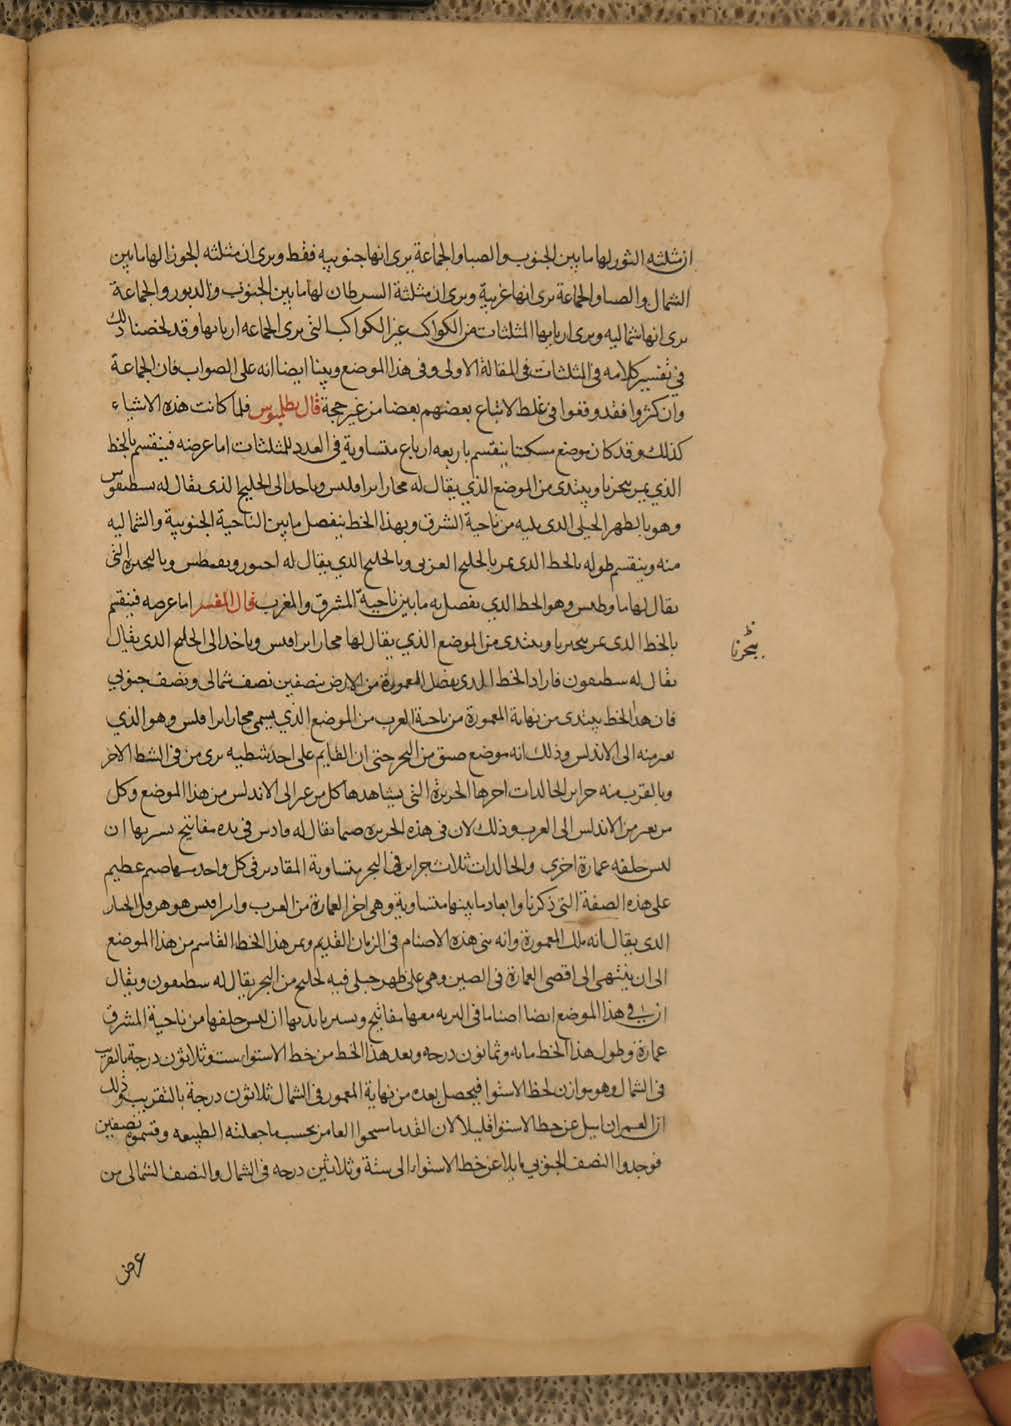 ان مثلثه الثور لها ما بين الجنوب والصبا والجماعة يرى انها جنوبيه فقط ويرى ان مثلثه الجوزا لها ما بين
الشمال والصبا والجماعة يرى انها غربية ويرى ان مثلثة السرطان لها ما بين الجنوب والدبور والجماعة
يرى انها شماليه ويرى ارباب هذا المثلثات من الكواكب غير الكواكب التى يرى الجماعه اربابها وقد لخصنا ذلك
في تفسير كلامه في المثلثات في المقالة الاولى وفى هذا الموضع وبينا ايضا انه على الصواب فان الجماعة
وان كثروا فقد وقعوا فى غلط لاتباع بعضهم بعضا من غير حجة قال بطلميوس فلما كانت هذه الاشياء
كذلك وقد كان موضع مسكننا ينقسم باربعه ارباع متساوية في العدد للمثلثات اما عرضه فينقسم بالخط
الذي يمر ببحرنا ويبتدى من الموضع الذي يقال له مجاز ايراقلس وياخذ الى الخليج الذى يقال له
وهو بالظهر الجبلى الذى يليه من ناحية الشرق وبهذا الخط ينفصل ما بين الناحية الجنوبية والشماليه
منه وينقسم طوله بالخط الذى يمر بالخليج العربى وبالخليج الذي يقال له وبالبحيرة التى
يقال لها ماوطيس وهو الخط الذي يفصل به ما بين ناحية المشرق والمغرب قال المفسر اما عرضه فينقسم
بالخط الذى يمر ببحرنا ويبتدى من الموضع الذي يقال لها مجاز ايراقلس وياخذ الى الخليج الذى يقال
يقال له فاراد الخط الذى يفصل المعمورة من الارض بنصفين نصف شمالى ونصف جنوبي
فان هذا الخط يبتدى من نهاية المعمورة من ناحية الغرب من الموضع الذي يسمى مجاز ايراقلس وهو الذي
يعبر منه الى الاندلس وذلك انه موضع ضيق من البحر حتى ان القايم على احد شطيه يرى من فى الشط الاخر
وبالقرب منه جزاير الخالدات اخرها الجزيرة التى يشاهدها كل من عبر الى الاندلس من هذا الموضع وكل
من يعبر من الاندلس الى الغرب وذلك لان في هذه الجزيره صنما يقال له قادس فى يده مفاتيح يشير بها ان
ليس خلفه عمارة اخرى والخالدات ثلاث جزاير فى البحر متساوية المقادير في كل واحد منها صنم عظيم
على هذه الصفة التى ذكرنا وابعاد ما بينها متساوية وهى اخر العمارة من الغرب وايراقلس هو هرقل الجبار
الذى يقال انه ملك المعمورة وانه بنى هذه الاصنام فى الزمان القديم ويمر هذا الخط القاسم من هذا الموضع
الى ان ينتهى الى اقصى العمارة فى الصين وهى على ظهر جبلى فيه لخليج من البحر يقال له ويقال
ان فى هذا الموضع ايضا اصناما فى البريه معها مفاتيح وتشير بايديها ان ليس خلفها من ناحية المشرق
عمارة وطول هذا الخط مايه وثمانون درجه وبعد هذا الخط من خط الاستوا ست وثلاثون درجة بالتقريب
فى الشمال وهو موازن لخط الاستوا فيحصل بعده من نهاية المعمور فى الشمال ثلاثون درجة بالتقريب وذلك
ان العمران يميل عن خط الاستوا قليلا لان القدما مسحوا العامر بحسب ما جعلته الطبيعه وقسموه بنصفين
فوجدوا النصف الجنوبي مايلا عن خط الاستواء الى ستة وثلاثين درجه فى الشمال والنصف الشمالى من
ببحرنا
عرض